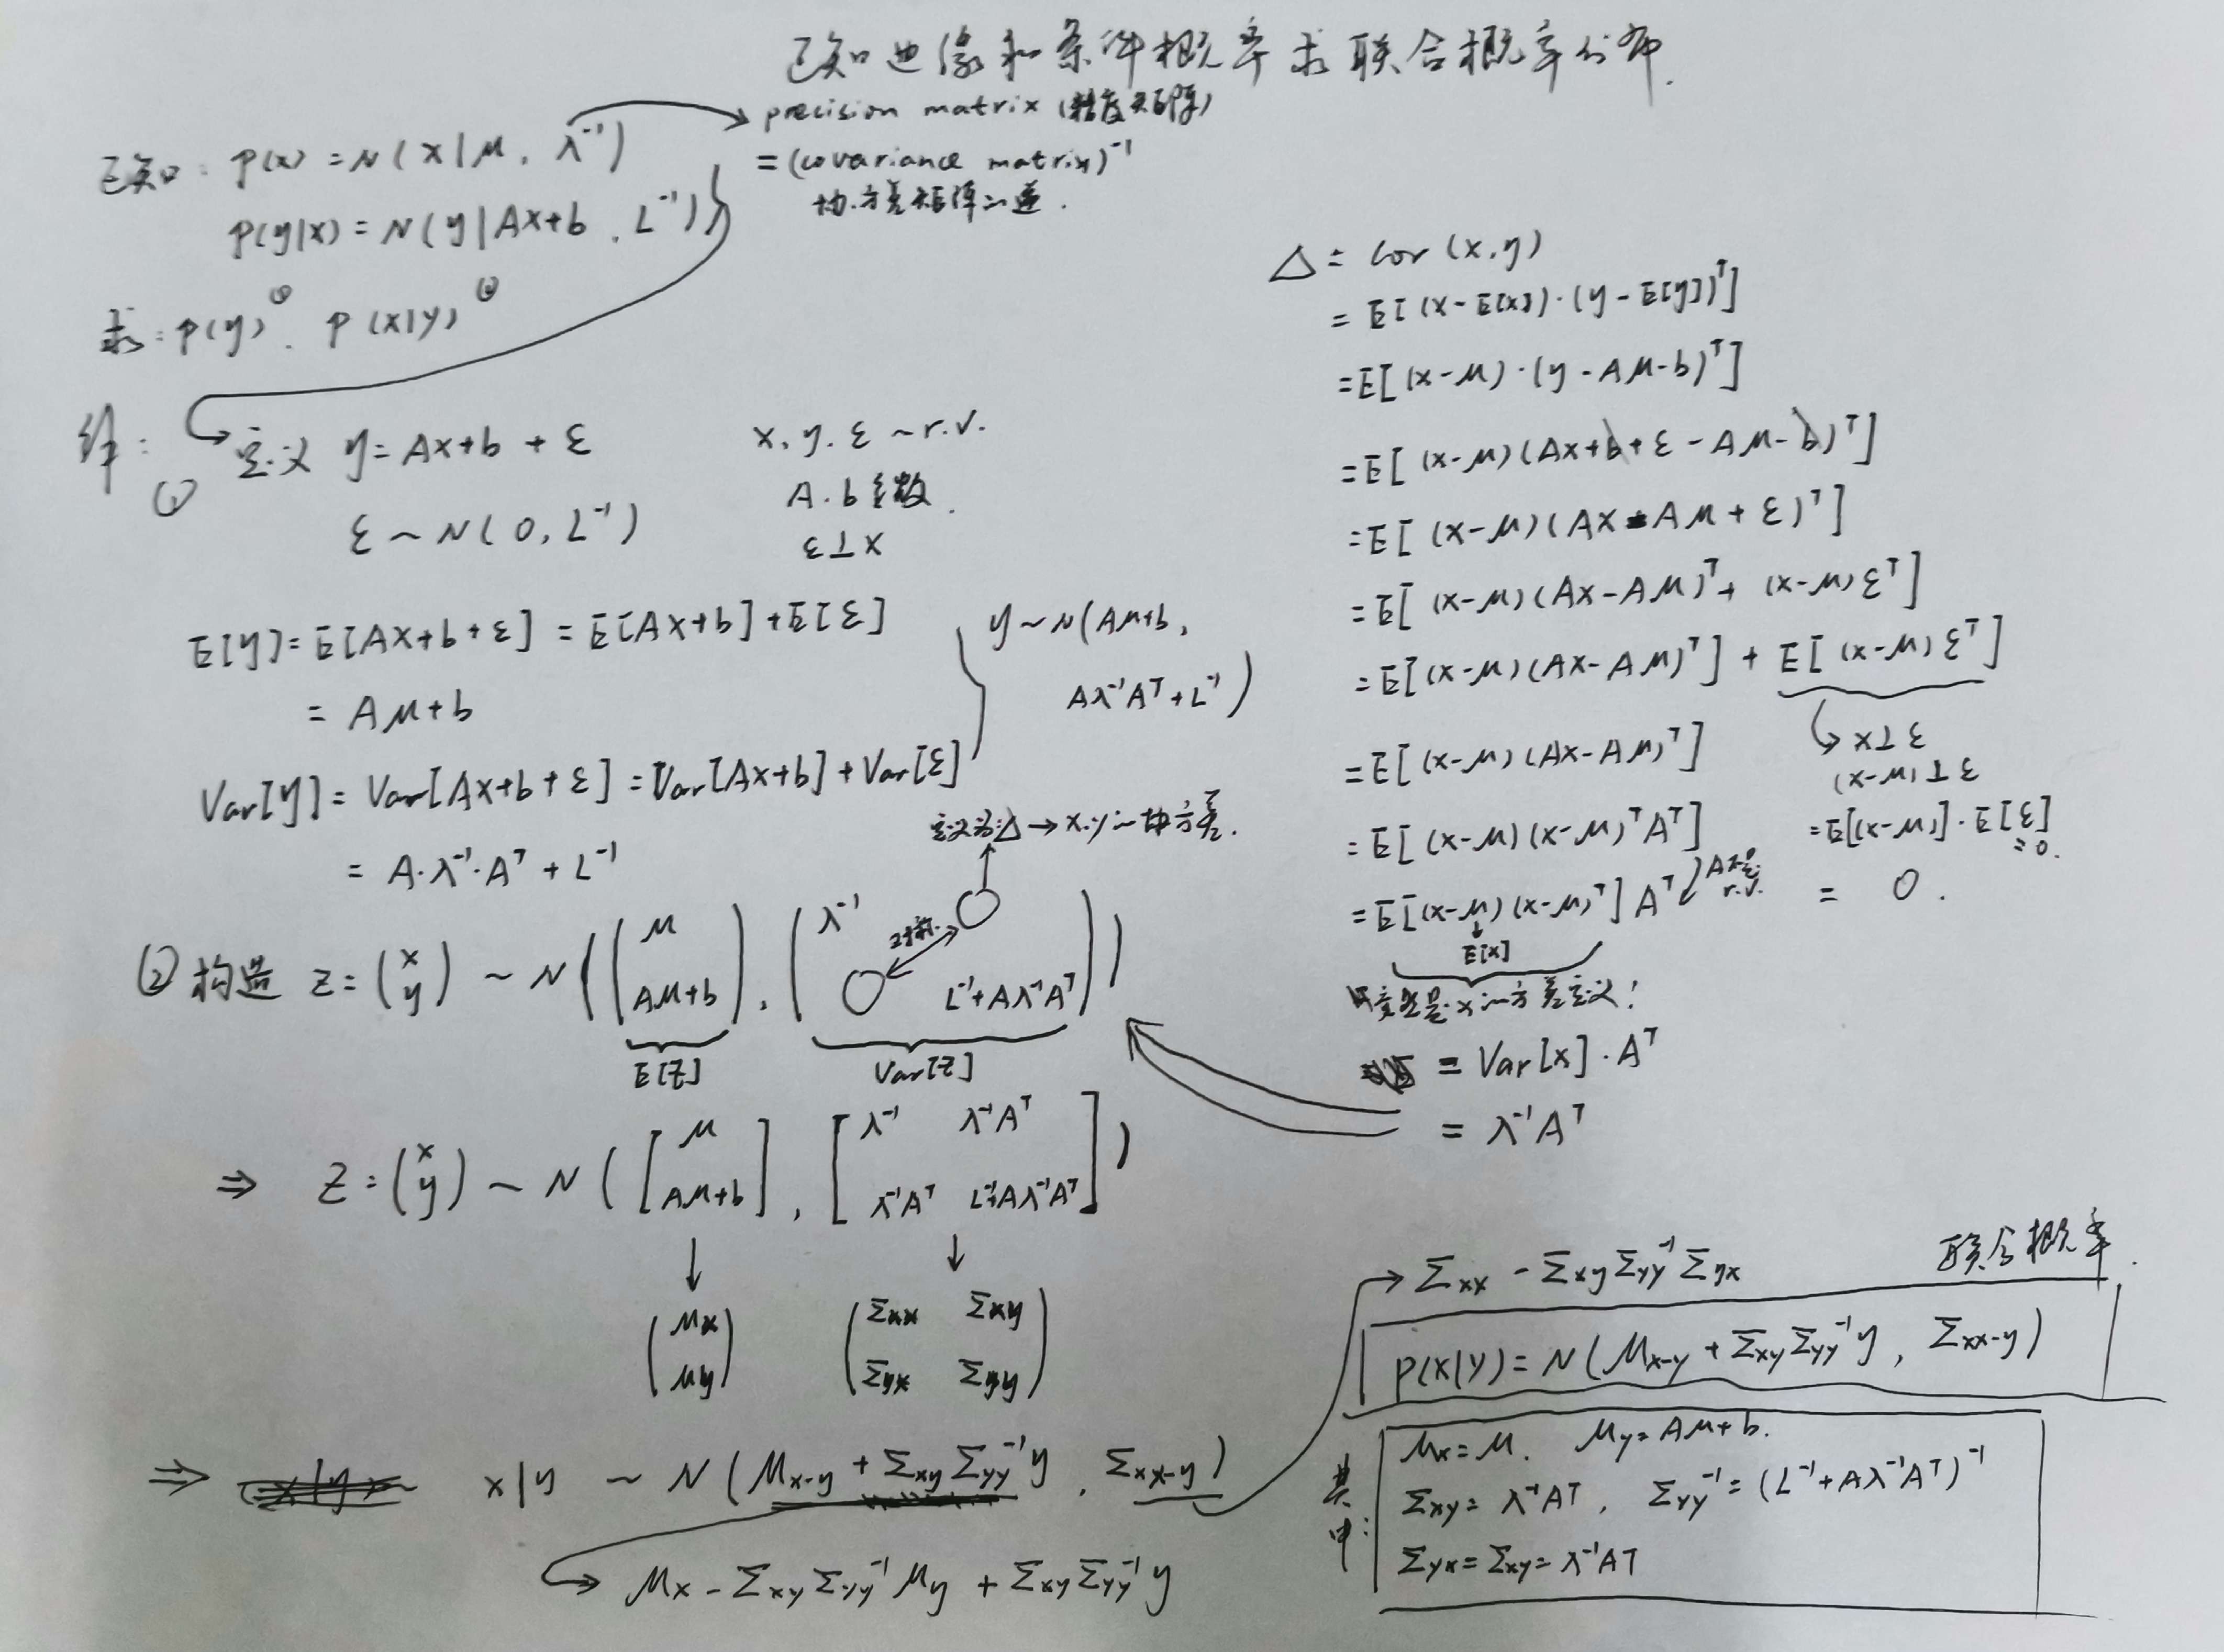 已知边缘和条件概率求联合概率分布.
已知: p(x) = N(x|μ, λ⁻¹)
precision matrix (精度矩阵)
= (covariance matrix)⁻¹
协方差矩阵的逆.
p(y|x) = N(y|Ax+b, L⁻¹)
求: p(y)①. p(x|y)②
解:
① 定义 y = Ax+b + ε
ε ~ N(0, L⁻¹)
x. y. ε ~ r.v.
A. b 系数.
ε⊥x
E[y] = E[Ax+b+ε] = E[Ax+b] + E[ε]
= Aμ+b
Var[y] = Var[Ax+b+ε] = Var[Ax+b] + Var[ε]
= A·λ⁻¹·Aᵀ + L⁻¹
y ~ N(Aμ+b,
Aλ⁻¹Aᵀ + L⁻¹)
定义为△ → x.y的协方差.
② 构造 Z = (x y) ~ N((μ Aμ+b), (λ⁻¹ ○ ○ L⁻¹+Aλ⁻¹Aᵀ))
对称.
E[Z] Var[Z]
⇒ Z = (x y) ~ N([μ Aμ+b], [λ⁻¹ λ⁻¹Aᵀ λ⁻¹Aᵀ L⁻¹+Aλ⁻¹Aᵀ])
↓ ↓
(μx μy) (Σxx Σxy Σyx Σyy)
⇒ x|y ~ N(μx-y + Σxy Σyy⁻¹ y, Σxx-y)
→ μx - Σxy Σyy⁻¹ μy + Σxy Σyy⁻¹ y
△ = cov(x,y)
= E[(x-E[x])·(y-E[y])ᵀ]
= E[(x-μ)·(y-Aμ-b)ᵀ]
= E[(x-μ)(Ax+b+ε-Aμ-b)ᵀ]
= E[(x-μ)(Ax-Aμ+ε)ᵀ]
= E[(x-μ)(Ax-Aμ)ᵀ + (x-μ)εᵀ]
= E[(x-μ)(Ax-Aμ)ᵀ] + E[(x-μ)εᵀ]
→ x⊥ε
(x-μ)⊥ε
= E[(x-μ)]·E[ε]
=0.
= 0.
= E[(x-μ)(Ax-Aμ)ᵀ]
= E[(x-μ)(x-μ)ᵀAᵀ]
A不是
r.v.
= E[(x-μ)(x-μ)ᵀ]Aᵀ
E[x]
是x的方差定义!
= Var[x]·Aᵀ
= λ⁻¹Aᵀ
→ Σxx - Σxy Σyy⁻¹ Σyx
联合概率.
p(x|y) = N(μx-y + Σxy Σyy⁻¹ y, Σxx-y)
其中:
μx = μ. μy = Aμ+b.
Σxy = λ⁻¹Aᵀ, Σyy⁻¹ = (L⁻¹+Aλ⁻¹Aᵀ)⁻¹
Σyx = Σxy = λ⁻¹Aᵀ